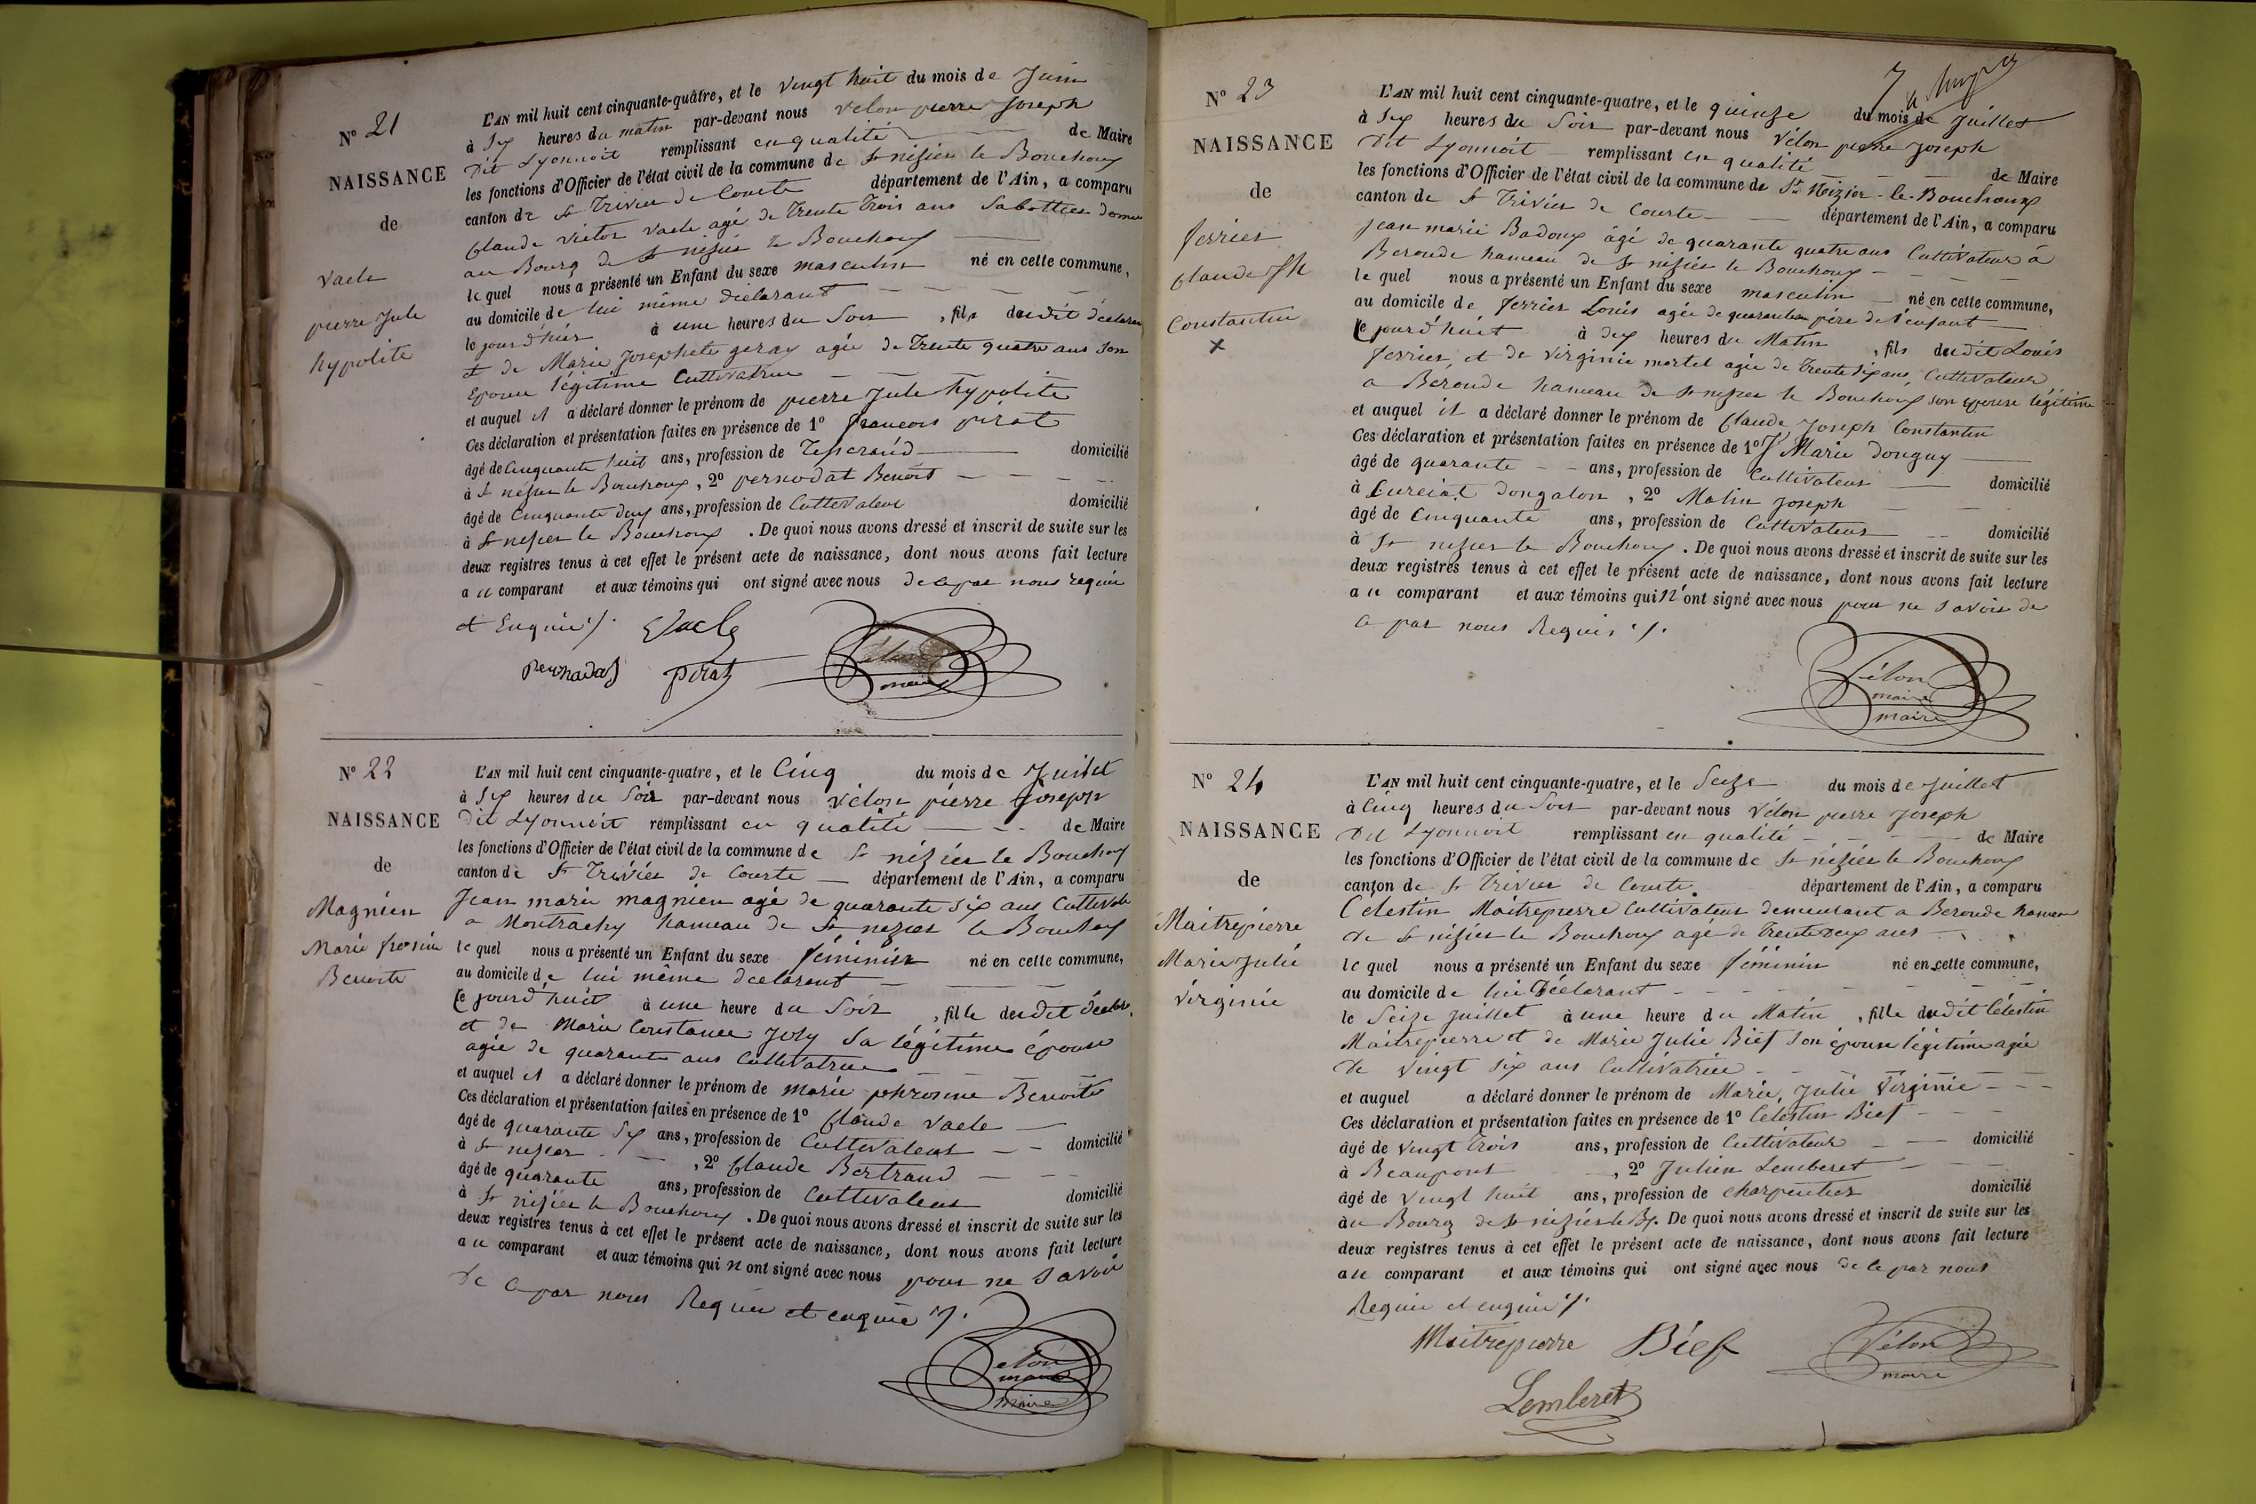 N° 21
NAISSANCE
de
Vacle
pierre Jule
hypolite
L'AN mil huit cent cinquante-quatre, et le vingt huit du mois de Juin
à Six heures du matin par-devant nous velon pierre Joseph
Dit Lyonnoit remplissant en qualité de Maire
les fonctions d'Officier de l'état civil de la commune de St nisier le Bouchoux
canton de St Trivier de Courte département de l'Ain, a comparu
Claude victor vacle agé de trente trois ans Sabottier
au Bourg de St nisier le Bouchoux
le quel nous a présenté un Enfant du sexe masculin né en cette commune,
au domicile de lui même déclarant
le jourd'hier à une heures du Soir, fils dudit déclaran
et de Marie Josephete geray agée de Trente quatre ans Son
Epouse légitime Cultivatrice
et auquel il a déclaré donner le prénom de pierre Jule hypolite
Ces déclaration et présentation faites en présence de 1° francois pirat
âgé de Cinquante huit ans, profession de Tisserand domicilié
à St nisier le Bouchoux, 2° pernodat Benoit
âgé de Cinquante deux ans, profession de Cultivateur domicilié
à St nisier le Bouchoux. De quoi nous avons dressé et inscrit de suite sur les
deux registres tenus à cet effet le présent acte de naissance, dont nous avons fait lecture
au comparant et aux témoins qui ont signé avec nous de ce par nous requie
et Enquie ./.
Vacle
pernadat pirat
Vélon
maire
N° 22
NAISSANCE
de
Magnien
Marie frosine
Benoite
L'AN mil huit cent cinquante-quatre, et le Cinq du mois de Juillet
à Six heures du Soir par-devant nous Vélon pierre Joseph
Dit Lyonnoit remplissant en qualité de Maire
les fonctions d'Officier de l'état civil de la commune de St nisier le Bouchoux
canton de St Trivier de Courte département de l'Ain, a comparu
Jean marie magnien agé de quarante six ans Cultivate
a Montrachy hameau de St nisier le Bouchoux
le quel nous a présenté un Enfant du sexe féminin né en cette commune,
au domicile de lui même déclarant
Ce jourd'huit à une heure du Soir, fille dudit déclar.
et de Marie Constance Joly Sa légitime épouse
agée de quarante ans Cultivatrice
et auquel il a déclaré donner le prénom de marie phrosine Benoite
Ces déclaration et présentation faites en présence de 1° Claude Vacle
âgé de quarante Six ans, profession de Cultivateur domicilié
à St nisier, 2° Claude Bertrand
âgé de quarante ans, profession de Cultivateur domicilié
à St nisier le Bouchoux. De quoi nous avons dressé et inscrit de suite sur les
deux registres tenus à cet effet le présent acte de naissance, dont nous avons fait lecture
au comparant et aux témoins qui n ont signé avec nous pour ne Savoir
de ce par nous Requie et enquie ./.
Velon
maire
maire
N° 23
NAISSANCE
de
ferrier
Claude Jph
Constantin
x
L'AN mil huit cent cinquante-quatre, et le quinze du mois de Juillet
à Six heures du Soir par-devant nous Vélon pierre Joseph
Dit Lyonnoit remplissant en qualité de Maire
les fonctions d'Officier de l'état civil de la commune de St Nizier-le-Bouchoux
canton de St Trivier de Courte département de l'Ain, a comparu
Jean marie Badoux âgé de quarante quatre ans Cultivateur à
Beronde hameau de St nisier le Bouchoux
le quel nous a présenté un Enfant du sexe masculin né en cette commune,
au domicile de ferrier Louis agée de quarante père de l'enfant
Ce jourd'huit à dix heures du Matin, fils dudit Louis
ferrier et de virginie mortel agée de trente six ans, Cultivateur
a Béronde hameau de St nisier le Bouchoux son épouse légitime
et auquel il a déclaré donner le prénom de Claude Joseph Constantin
Ces déclaration et présentation faites en présence de 1° Jh Marie Donguy
âgé de quarante ans, profession de Cultivateur domicilié
à Curciat dongalon, 2° Matin Joseph
âgé de Cinquante ans, profession de Cultivateur domicilié
à St nisier le Bouchoux. De quoi nous avons dressé et inscrit de suite sur les
deux registres tenus à cet effet le présent acte de naissance, dont nous avons fait lecture
au comparant et aux témoins qui n'ont signé avec nous pour ne Savoir de
ce par nous Requis ./.
Vélon
maire
maire
N° 24
NAISSANCE
de
Maitrepierre
Marie Julie
Virginie
L'AN mil huit cent cinquante-quatre, et le Seize du mois de Juillet
à Cinq heures du Soir par-devant nous Vélon pierre Joseph
Dit Lyonnoit remplissant en qualité de Maire
les fonctions d'Officier de l'état civil de la commune de St nisier le Bouchoux
canton de St Trivier de Courte département de l'Ain, a comparu
Célestin Maitrepierre Cultivateur demeurant a Beronde hameau
de St nisier le Bouchoux agé de Trente deux ans
le quel nous a présenté un Enfant du sexe féminin né en cette commune,
au domicile de lui Déclarant
le Seize Juillet à une heure du Matin, fille dudit Célestin
Maitrepierre et de Marie Julie Bief Son épouse légitime agée
de vingt six ans Cultivatrice
et auquel a déclaré donner le prénom de Marie, Julie Virginie
Ces déclaration et présentation faites en présence de 1° Célestin Bief
âgé de vingt trois ans, profession de Cultivateur domicilié
à Beaupont, 2° Julien Lemberet
âgé de vingt huit ans, profession de charpentier domicilié
au Bourg de St nisier le Bx. De quoi nous avons dressé et inscrit de suite sur les
deux registres tenus à cet effet le présent acte de naissance, dont nous avons fait lecture
au comparant et aux témoins qui ont signé avec nous de ce par nous
Requie et enquie ./.
Maitrepierre Bief Vélon
maire
Lemberet